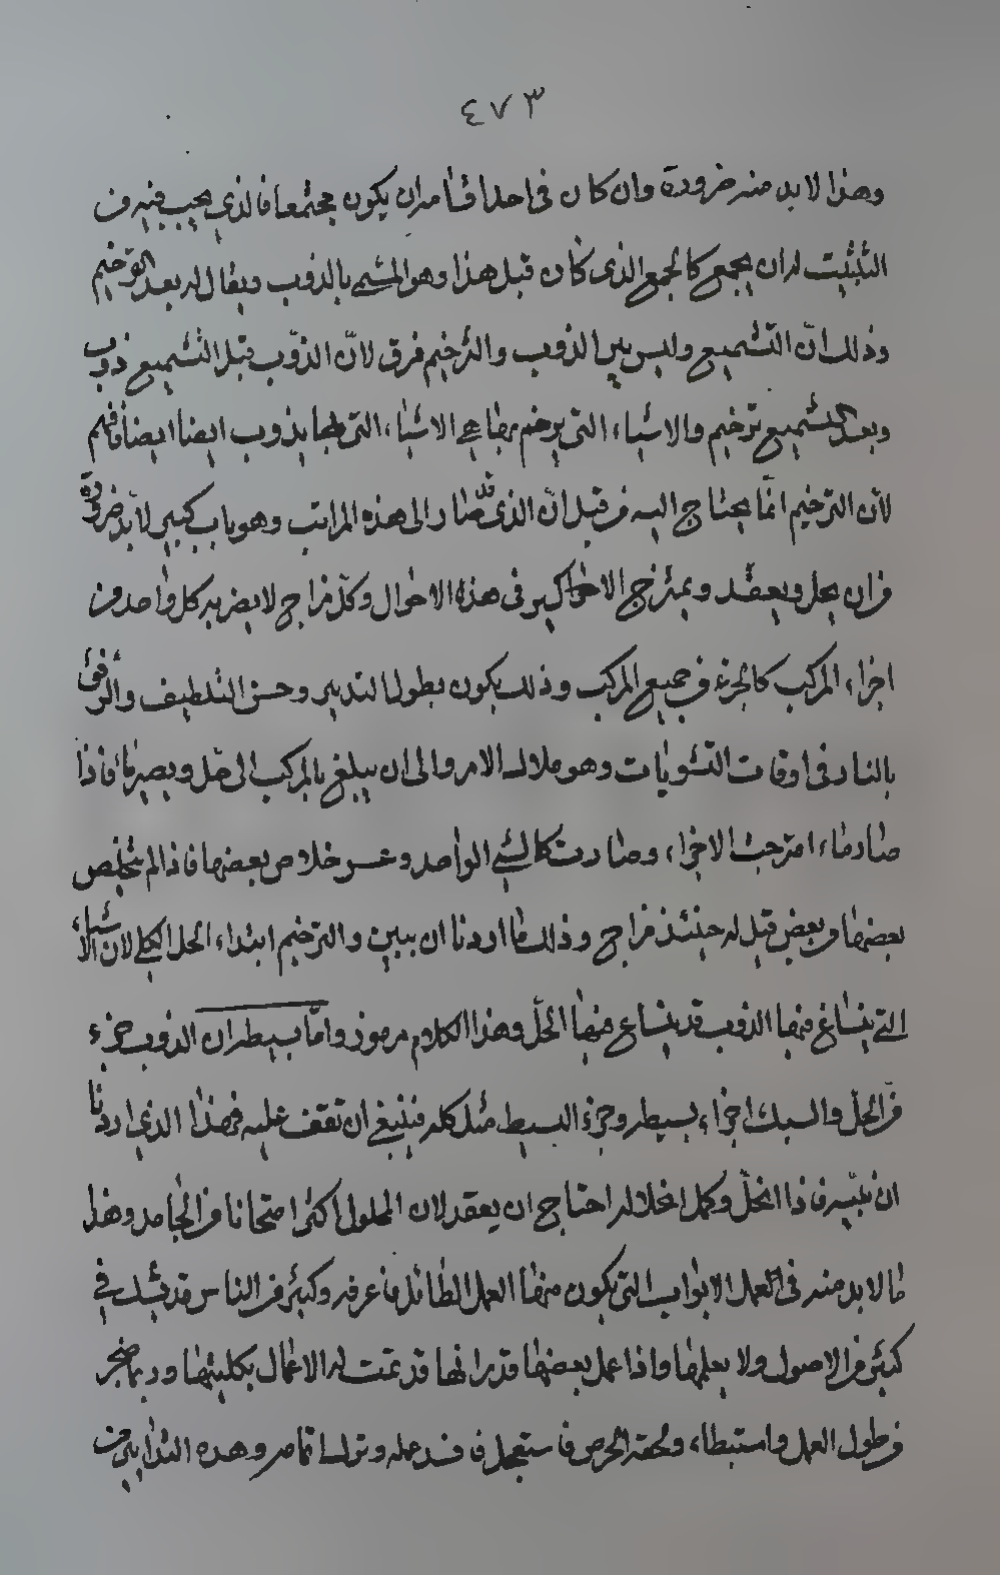 ٤٧٣
وهذا لا بد منه ضرورة وان كان في احد اقسامه ان يكون مجتمعا فالذي يجب فيه من
التثبيت له ان يجمع كالجمع الذى كان قبل هذا وهو المسمى بالذوب ويقال له بعد الترخيم
وذلك انّ التشميع وليس بين الذوب والترخيم فرق لانّ الذوب قبل التشميع ذوب
وبعد التشميع ترخيم والاشياء التى يرخم بها هي الاشياء التى بها يذوب ايضا ايضا فافهم
لأن الترخيم انمّا يحتاج اليه من قبل انّ الذى قد صار الى هذه المراتب وهو باب كبير لا بد ضرورة
من ان يحل ويعقد ويمتزج الاخر كبير فى هذه الاحوال وكلّ مزاج لا يضر به كل واحد من
اجزاء المركب كالجزء في جميع المركب وذلك يكون بطول التدبير وحسن التلطيف والرفق
بالنار فى اوقات التشويات وهو ملاك الامر والى ان يبلغ بالمركب الى حل ويصير ماء فاذا
صار ماء امتزجت الاجزاء وصارت كالشئ الواحد وعسر خلاص بعضها فاذا لم يتخلص
بعضها من بعض قيل له حينئذ مزاج وذلك ما اردنا ان نبين والترخيم ابتداء الحل الكلي لان الاشياء
التي ينساغ منها الذوب قد ينساغ منها الحلّ وهذا الكلام مرموز وامّا بسيطه ان الذوب جزء
من الحلّ والسبك اجزاء بسيطه وجزء البسيط مثل كله فينبغي ان تقف عليه فهذا الذي اردنا
ان نبيّنه فاذا انحلّ وكمل انحلاله احتاج ان يعقد لان المحلول اكثر امتحانا من الجامد وهذا
ما لا بد منه فى العمل الابواب التى يكون منها العمل الطائل فاعرفه وكثير من الناس قد يشك في
كثير من الاصول ولا يعلمها واذا عمل بعضها قدر انها قد تمت له الاعمال بكليتها وربما ضجر
من طول العمل واستبطاء ولحقه الحرص فاستعجل فافسد عمله وترك اتمامه وهذه التدابير من